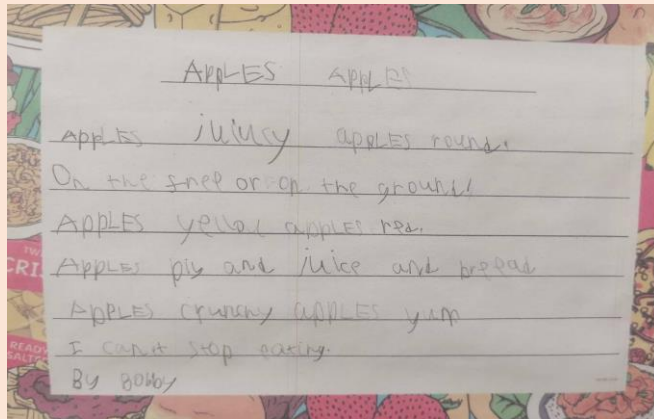 APPLES APPLES
APPLES juiucy apples round.
On the tree or on the ground!
APPLES yellow apples red.
APPLES piy and juice and bread
APPLES crunchy apples yum
I can't stop eating.
By Bobby
CRI
READY
SALTE